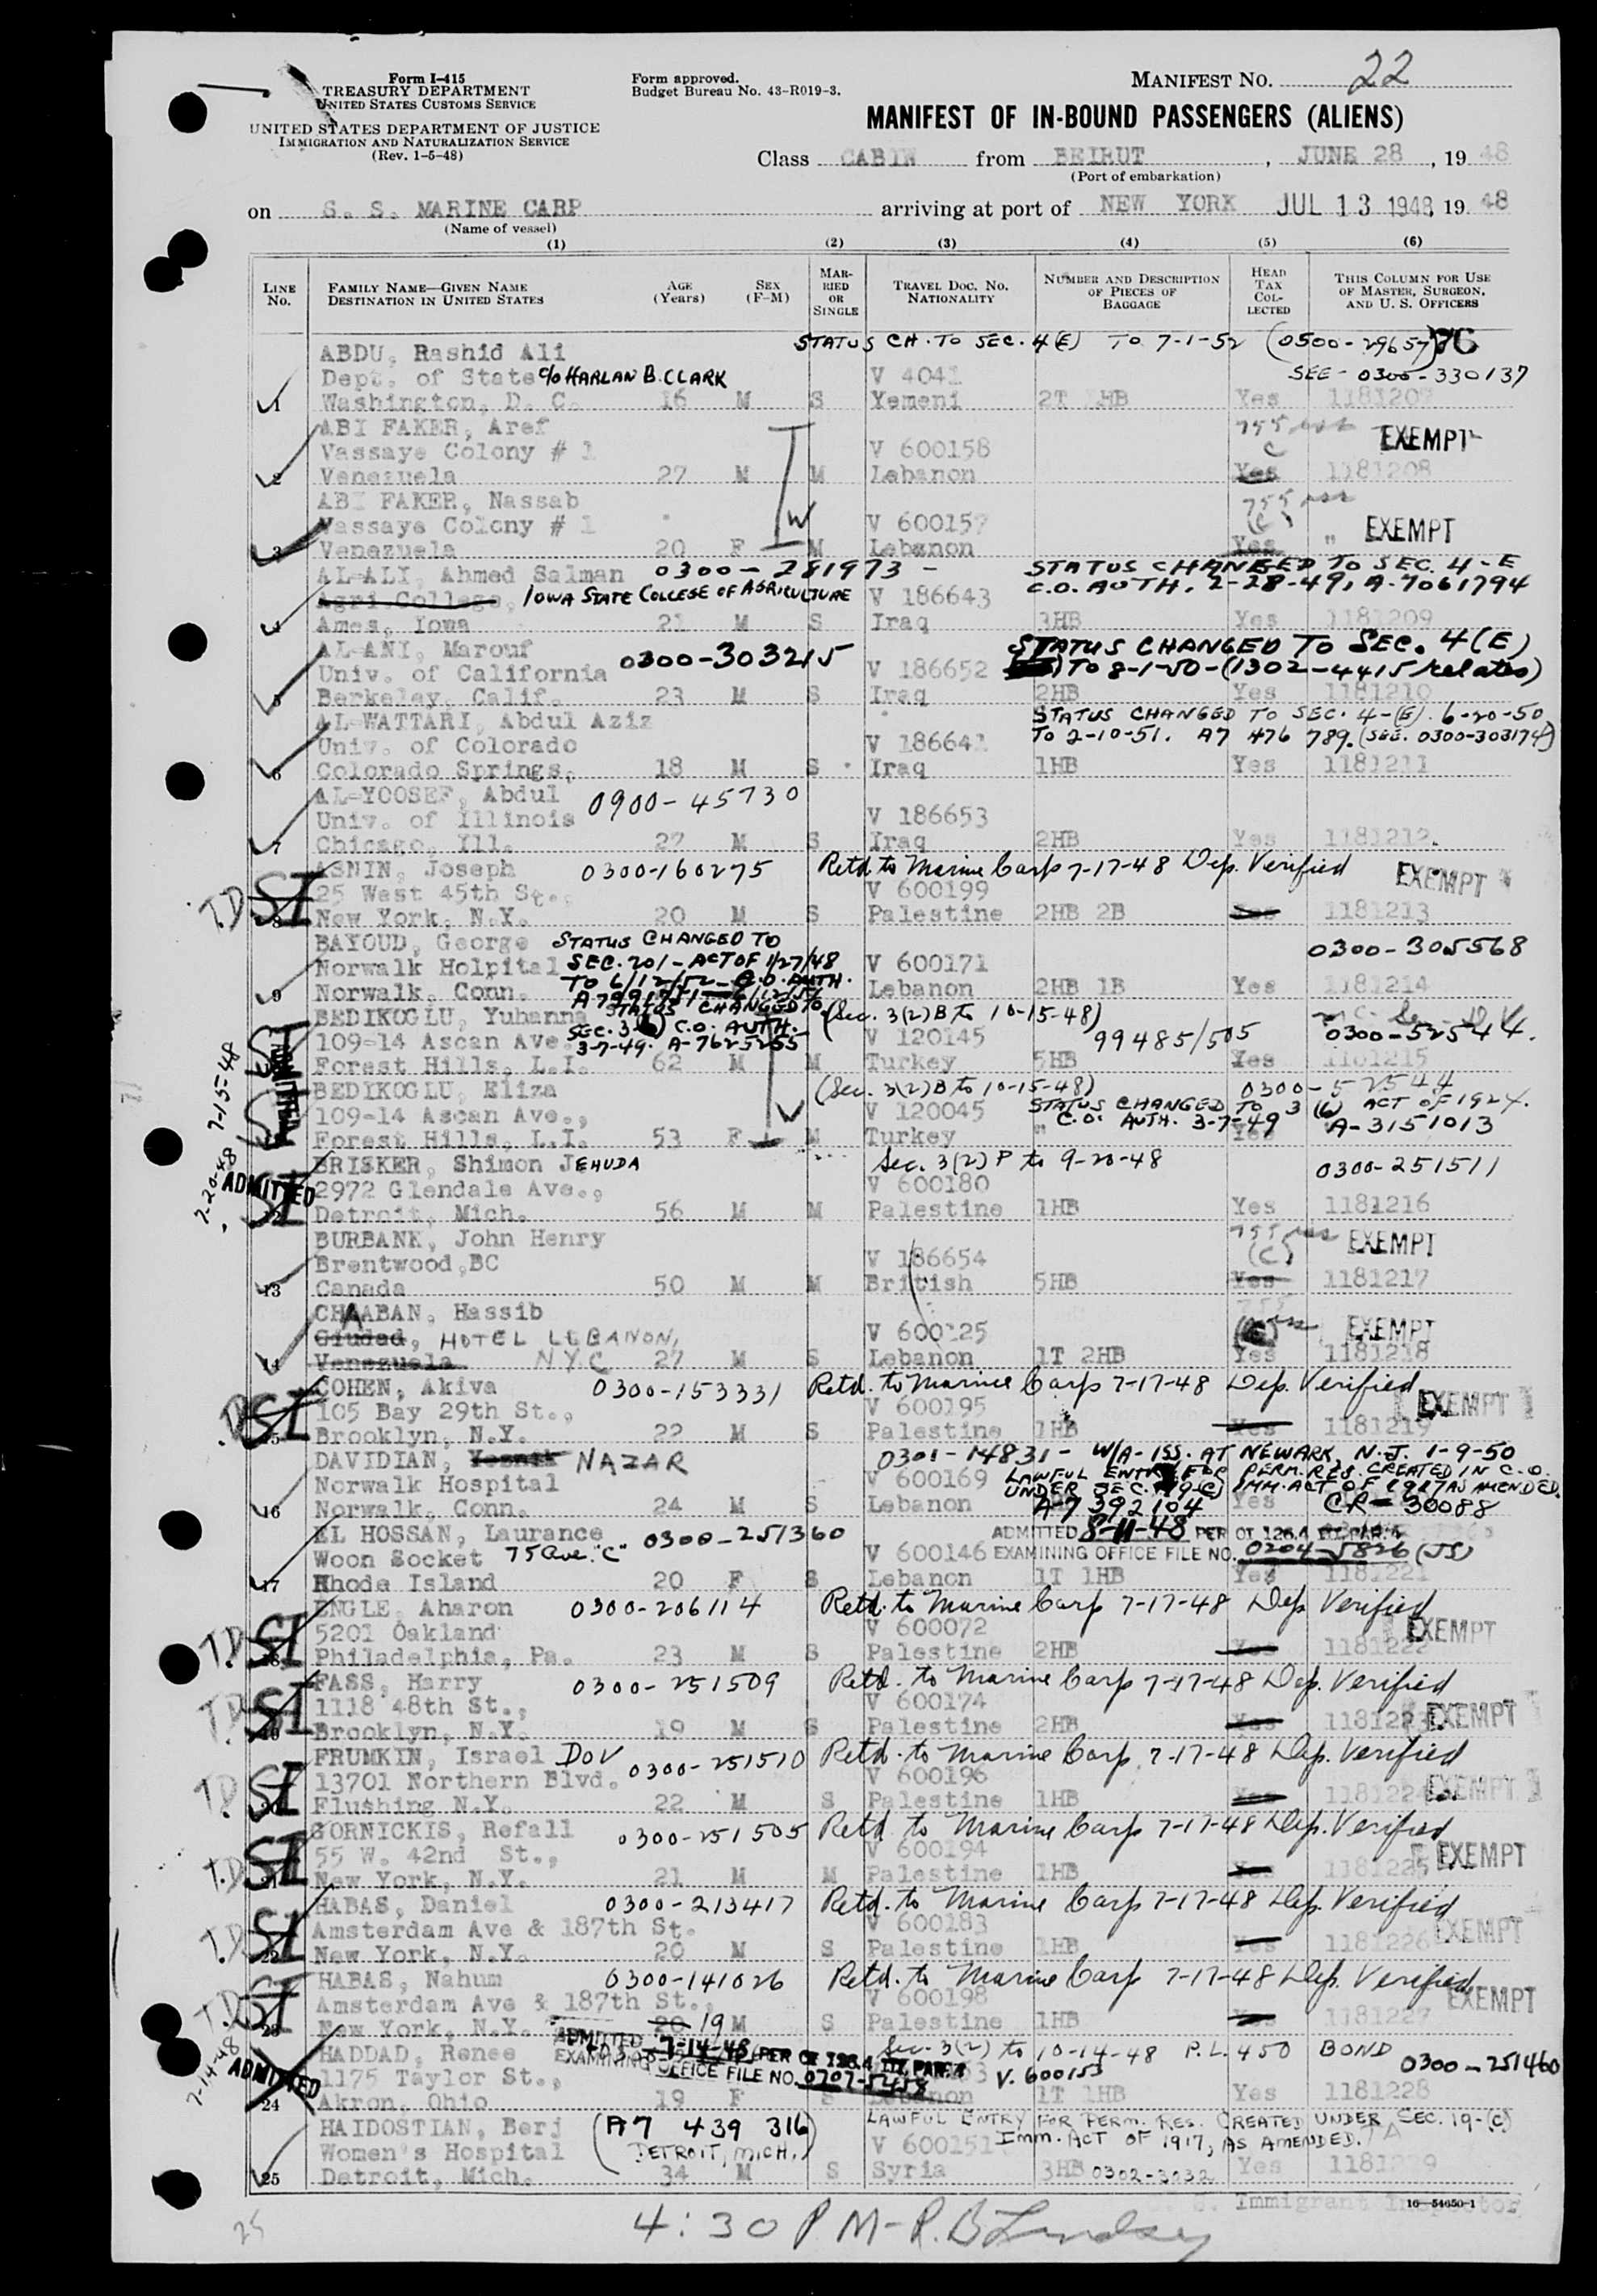 Form I-415
TREASURY DEPARTMENT
UNITED STATES CUSTOMS SERVICE
UNITED STATES DEPARTMENT OF JUSTICE
IMMIGRATION AND NATURALIZATION SERVICE
(Rev. 1-5-48)
Form approved.
Budget Bureau No. 43-R019-3.
MANIFEST NO. 22
MANIFEST OF IN-BOUND PASSENGERS (ALIENS)
Class CABIN from BEIRUT, JUNE 28, 19 48
(Port of embarkation)
on S. S. MARINE CARP arriving at port of NEW YORK JUL 13 1948, 19 48
(Name of vessel)
(1) (2) (3) (4) (5) (6)
LINE No.
FAMILY NAME—GIVEN NAME
DESTINATION IN UNITED STATES
AGE (Years)
SEX (F-M)
MARRIED OR SINGLE
TRAVEL DOC. NO.
NATIONALITY
NUMBER AND DESCRIPTION OF PIECES OF BAGGAGE
HEAD TAX COLLECTED
THIS COLUMN FOR USE OF MASTER, SURGEON, AND U. S. OFFICERS
STATUS CH. TO SEC. 4(E) TO 7-1-52 (0500-29657)
ABDU, Rashid Ali
Dept. of State c/o HARLAN B. CLARK V 4041 SEE - 0300-330137
1 Washington, D. C. 16 M S Yemeni 2T 1HB Yes 1181207
ABI FAKER, Aref 755 EXEMPT
Vassaye Colony # 1 V 600158 C
2 Venezuela 27 M M Lebanon Yes 1181208
ABI FAKER, Nassab 755
Vassaye Colony # 1 W V 600157 (C) " EXEMPT
3 Venezuela 20 F M Lebanon Yes
AL-ALI, Ahmed Salman 0300-281973 - STATUS CHANGED TO SEC. 4-E
Agri. College, IOWA STATE COLLEGE OF AGRICULTURE V 186643 C.O. AUTH. 2-28-49, A-7061794
4 Ames, Iowa 21 M S Iraq 3HB Yes 1181209
AL-ANI, Marouf 0300-303215 STATUS CHANGED TO SEC. 4(E)
Univ. of California V 186652 TO 8-1-50-(1302-4415 relates)
5 Berkeley, Calif. 23 M S Iraq 2HB Yes 1181210
AL-WATTARI, Abdul Aziz STATUS CHANGED TO SEC. 4-(E). 6-20-50
Univ. of Colorado V 186641 TO 2-10-51. A7 476 789. (SEE. 0300-303174)
6 Colorado Springs, 18 M S Iraq 1HB Yes 1181211
AL-YOOSEF, Abdul 0900-45730
Univ. of Illinois V 186653
7 Chicago, Ill. 27 M S Iraq 2HB Yes 1181212
ASNIN, Joseph 0300-160275 Retd to Marine Carp 7-17-48 Dep. Verified EXEMPT
TD SI 25 West 45th St., V 600199
8 New York, N.Y. 20 M S Palestine 2HB 2B Yes 1181213
BAYOUD, George STATUS CHANGED TO 0300-305568
Norwalk Holpital SEC. 201-ACT OF 1/27/48 V 600171
TO 6/12/52-C.O. AUTH.
9 Norwalk, Conn. Lebanon 2HB 1B Yes 1181214
BEDIKOGLU, Yuhanna STATUS CHANGED TO (Sec. 3(2)B to 10-15-48)
109-14 Ascan Ave. SEC. 3-(6) C.O. AUTH. 3-7-49. A-7625255 V 120145 99485/505 0300-52544.
Forest Hills, L.I. 62 M M Turkey 5HB Yes 1181215
BEDIKOGLU, Eliza (Sec. 3(2)B to 10-15-48) 0300-52544
109-14 Ascan Ave., V 120045 STATUS CHANGED TO 3 (6) ACT OF 1924.
Forest Hills, L.I. 53 F M Turkey " C.O. AUTH. 3-7-49 Yes A-3151013
BRISKER, Shimon JEHUDA Sec. 3(2) P to 9-20-48 0300-251511
ADMITTED 2972 Glendale Ave., V 600180
SI Detroit, Mich. 56 M M Palestine 1HB Yes 1181216
BURBANK, John Henry 755 EXEMPT
Brentwood, BC V 186654 (C)
13 Canada 50 M M British 5HB Yes 1181217
CHAABAN, Hassib
Ciudad, HOTEL LEBANON, V 600125 (C) EXEMPT
14 Venezuela N.Y.C 27 M S Lebanon 1T 2HB Yes 1181218
COHEN, Akiva 0300-153331 Retd. to Marine Carp 7-17-48 Dep. Verified
SI 105 Bay 29th St., V 600195 EXEMPT
15 Brooklyn, N.Y. 22 M S Palestine 1HB Yes 1181219
DAVIDIAN, NAZAR 0301-14831- W/A-ISS. AT NEWARK, N.J. 1-9-50
Norwalk Hospital V 600169 LAWFUL ENTRY FOR PERM. RES. CREATED IN C.O.
UNDER SEC. 19(C) IMM. ACT OF 1917 AS AMENDED.
16 Norwalk, Conn. 24 M S Lebanon A-7392104 Yes CR-30088
EL HOSSAN, Laurance 0300-251360 ADMITTED 8-11-48 PER OI 126.4
Woon Socket 75 Ave. "C" V 600146 EXAMINING OFFICE FILE NO. 0204-5826 (JS)
17 Rhode Island 20 F S Lebanon 1T 1HB Yes 1181221
ENGLE, Aharon 0300-206114 Retd. to Marine Carp 7-17-48 Dep Verified
TD SI 5201 Oakland V 600072 EXEMPT
18 Philadelphia, Pa. 23 M S Palestine 2HB Yes 1181222
FASS, Harry 0300-251509 Retd. to Marine Carp 7-17-48 Dep. Verified
TD SI 1118 48th St., V 600174 EXEMPT
19 Brooklyn, N.Y. 19 M S Palestine 2HB Yes 1181223
FRUMKIN, Israel DOV 0300-251510 Retd. to Marine Carp, 7-17-48 Dep. Verified
TD SI 13701 Northern Blvd. V 600196 EXEMPT
20 Flushing N.Y. 22 M S Palestine 1HB Yes 1181224
GORNICKIS, Refall 0300-251505 Retd to Marine Carp 7-17-48 Dep. Verified
T.D SI 55 W. 42nd St., V 600194 EXEMPT
21 New York, N.Y. 21 M M Palestine 1HB Yes 1181225
HABAS, Daniel 0300-213417 Retd. to Marine Carp 7-17-48 Dep. Verified
T.D SI Amsterdam Ave & 187th St. V 600183 EXEMPT
22 New York, N.Y. 20 M S Palestine 1HB Yes 1181226
HABAS, Nahum 0300-141026 Retd. to Marine Carp 7-17-48 Dep. Verified
T.D SI Amsterdam Ave & 187th St., V 600198 EXEMPT
23 New York, N.Y. 20 19 M S Palestine 1HB Yes 1181227
HADDAD, Renee ADMITTED 7-14-48 PER OI 126.4 Sec. 3(2) to 10-14-48 P.L. 450 BOND 0300-251460
7-14-48 ADMITTED 1175 Taylor St., EXAMINING OFFICE FILE NO. 0707-5458 V. 600153
24 Akron, Ohio 19 F S Lebanon 1T 1HB Yes 1181228
HAIDOSTIAN, Berj (A7 439 316) LAWFUL ENTRY FOR PERM. RES. CREATED UNDER SEC. 19-(C)
Women's Hospital DETROIT, MICH. V 600151 Imm. ACT OF 1917, AS AMENDED.
25 Detroit, Mich. 34 M S Syria 3HB 0302-3032 Yes 1181229
16-54650-1
25
4:30 PM - R. B Lindsay